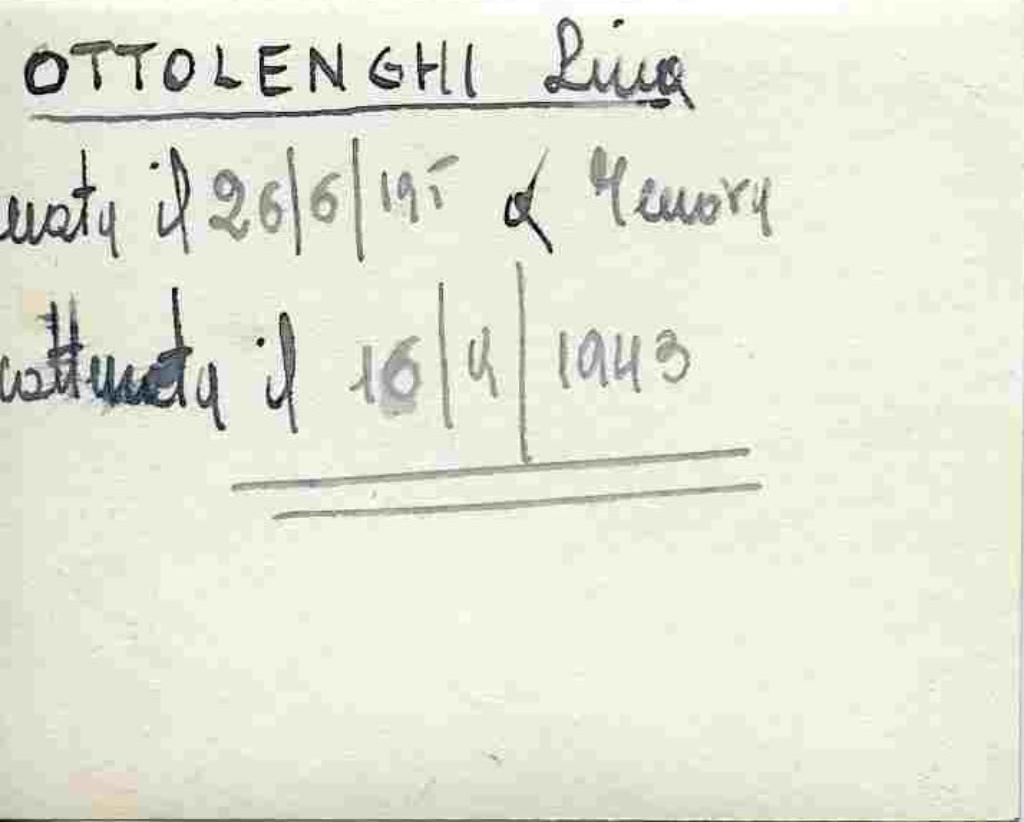 OTTOLENGHI Lina
nata il 26/6/191 a Genova
il 16/4/1943